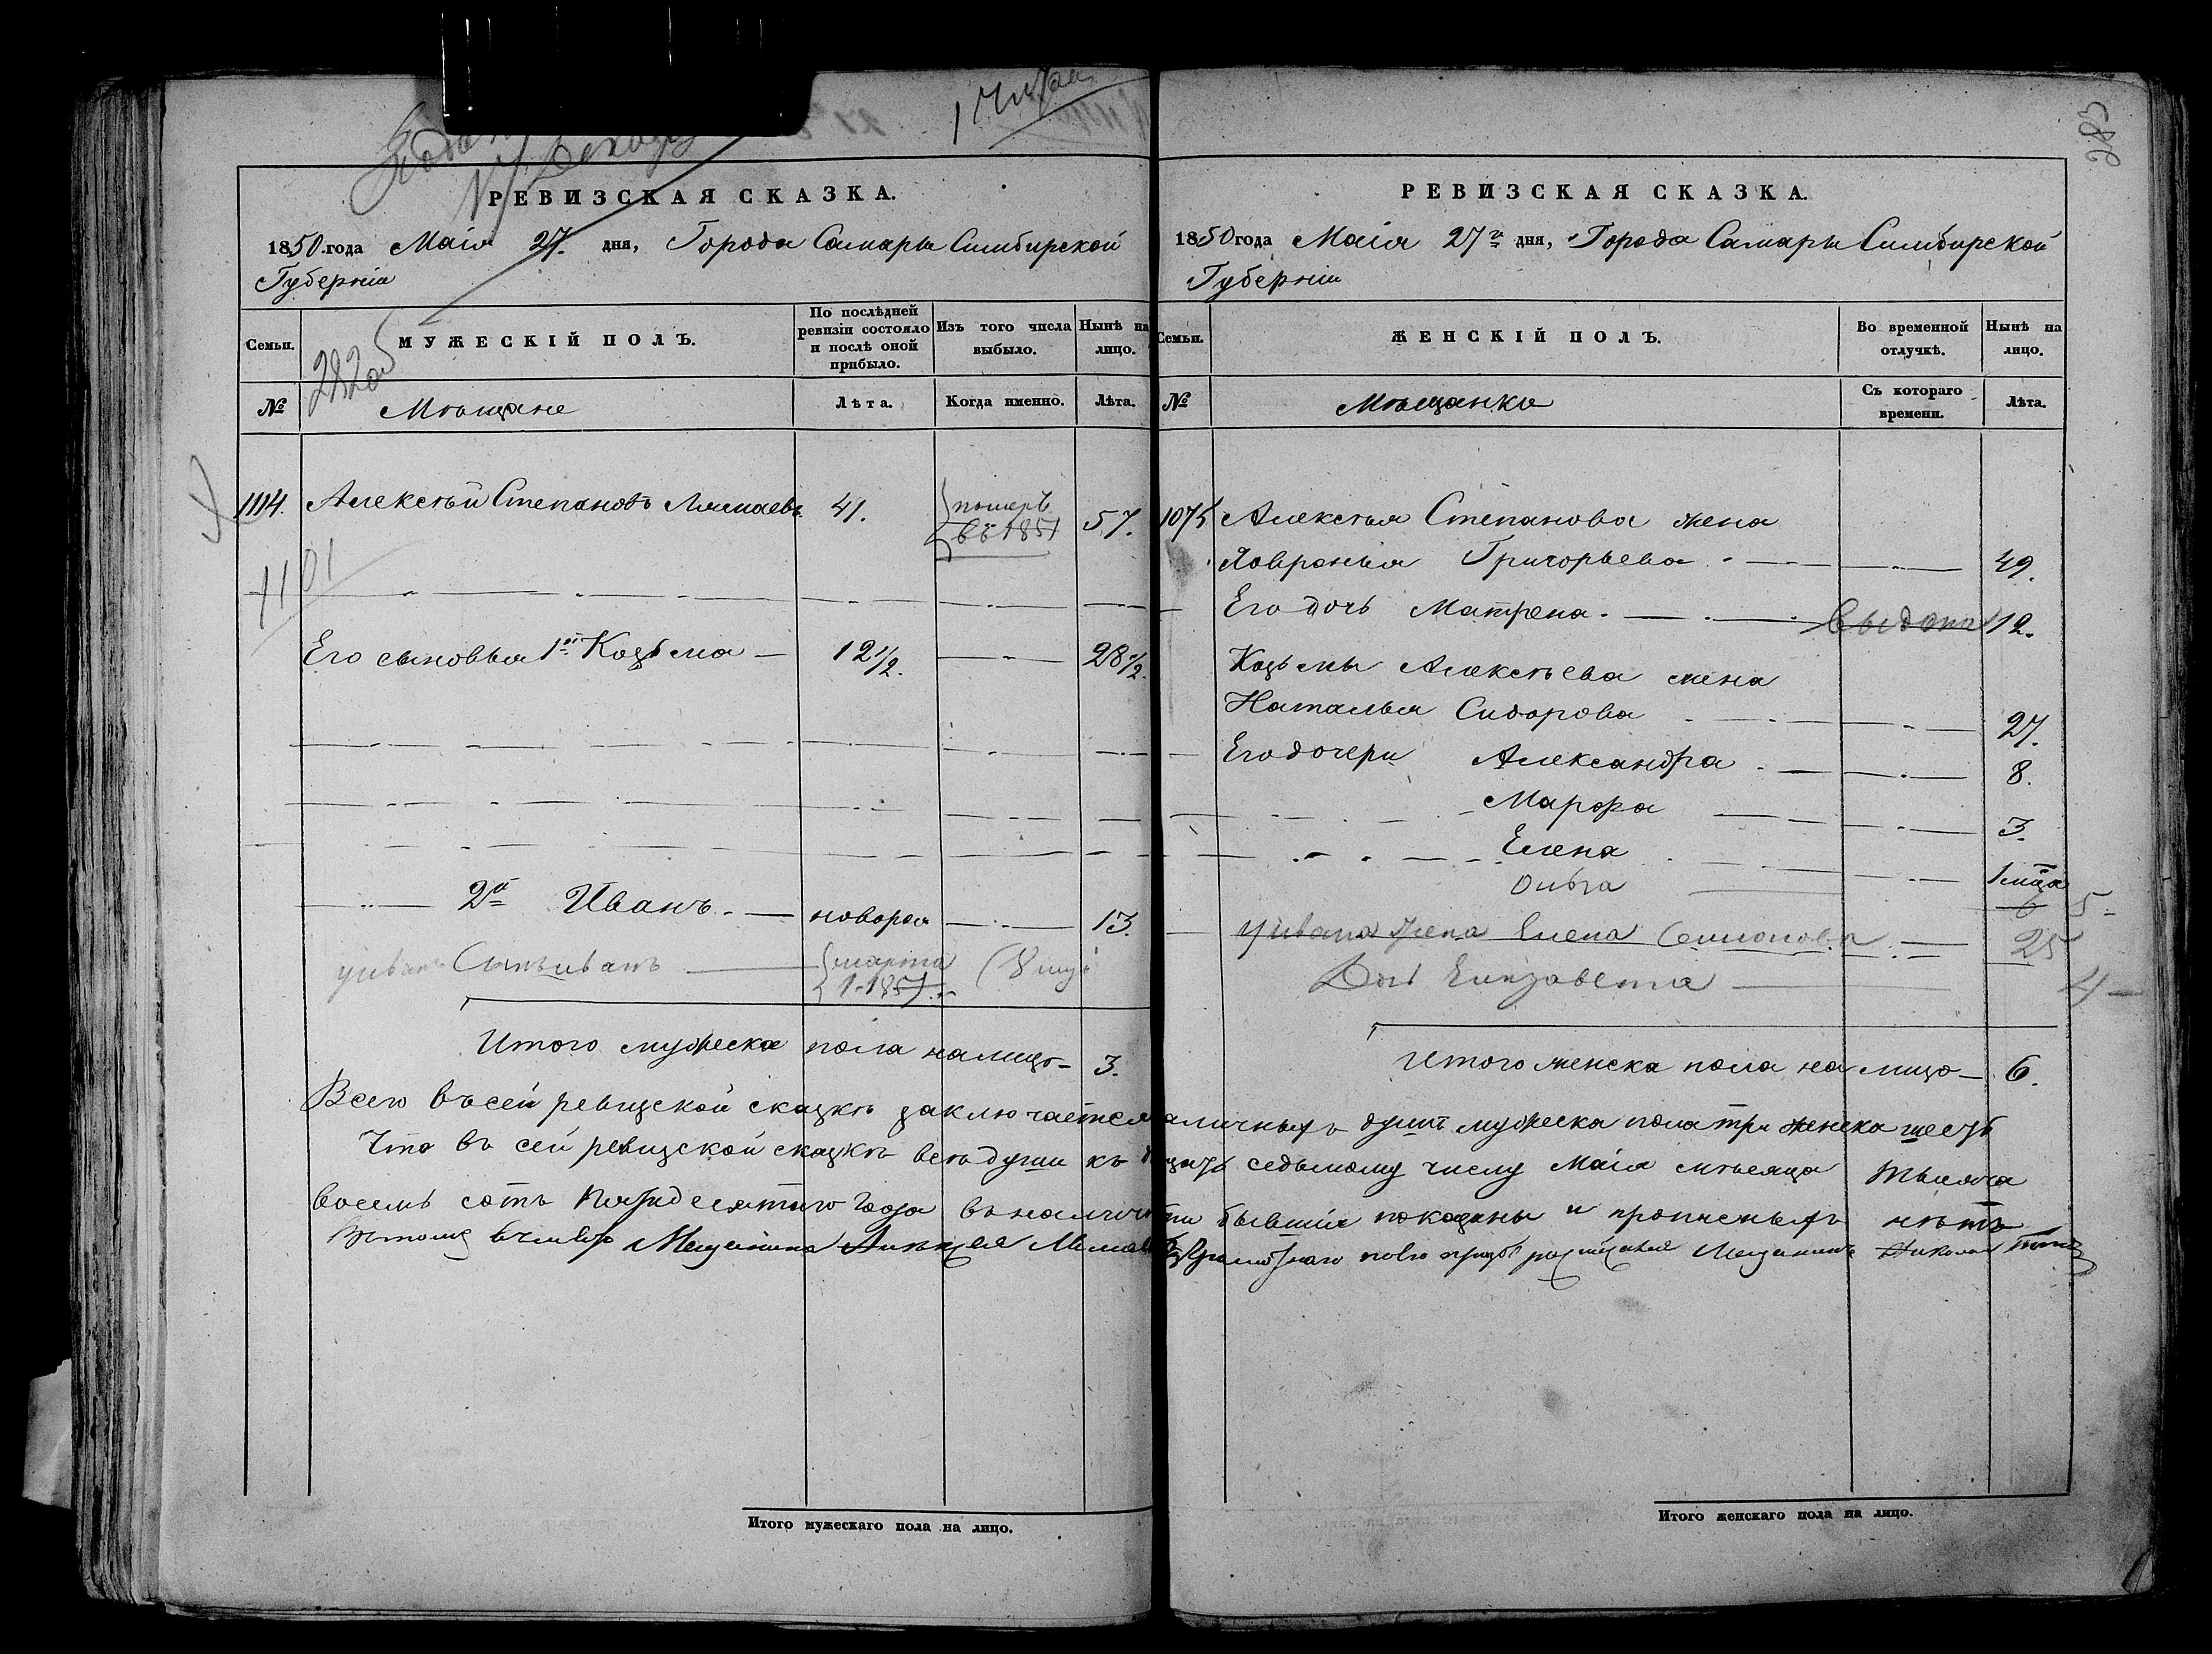 1 Чиста
283
РЕВИЗСКАЯ СКАЗКА.
1850 года Маiя 27. дня, Города Самары Симбирской
Губернiи
Семьи.
МУЖЕСКIЙ ПОЛЪ.
По послѣдней ревизiи состояло и послѣ оной прибыло.
Изъ того числа выбыло.
Нынѣ на лицо.
282 об
№
Мѣщане
Лѣта.
Когда именно.
Лѣта.
1114. Алексѣй Степановъ 41. померъ въ 1851 57.
1101
Его сыновья 1й Козьма 12 1/2. 28 1/2.
2й Иванъ новорож 13.
у Ивана Сынъ Иванъ марта 1-1857
Итого мужеска пола налицо 3.
РЕВИЗСКАЯ СКАЗКА.
1850 года Маiя 27го дня, Города Самары Симбирской
Губернiи
Семьи.
ЖЕНСКIЙ ПОЛЪ.
Во временной отлучкѣ.
Нынѣ на лицо.
№
Мѣщанки
Съ котораго времени.
Лѣта.
1075 Алексѣя Степанова жена
Хавронья Григорьева 49.
Его дочь Матрена выдана 12.
Козьмы Алексѣева жена
Наталья Сидорова 27.
Его дочери Александра 8.
Марфа 3.
Елена 1 мца
Ольга 6 5
у Ивана жена Елена Семионова 25
Дочь Елизавета 4
Итого женска пола на лицо 6.
Всего въ сей ревизской сказкѣ заключается наличныхъ душъ мужеска пола три женска шесть
Что въ сей ревизской сказкѣ всѣ души къ седьмому числу Маiя мѣсяца тысяча
восемь сотъ пятидесятаго года въ наличности бывшiе показаны и прописныхъ нѣтъ
Въ томъ вмѣсто Мещанина Алексея неграмотнаго по его прозбѣ росписался Мещанинъ Николай
Итого мужескаго пола на лицо.
Итого женскаго пола на лицо.